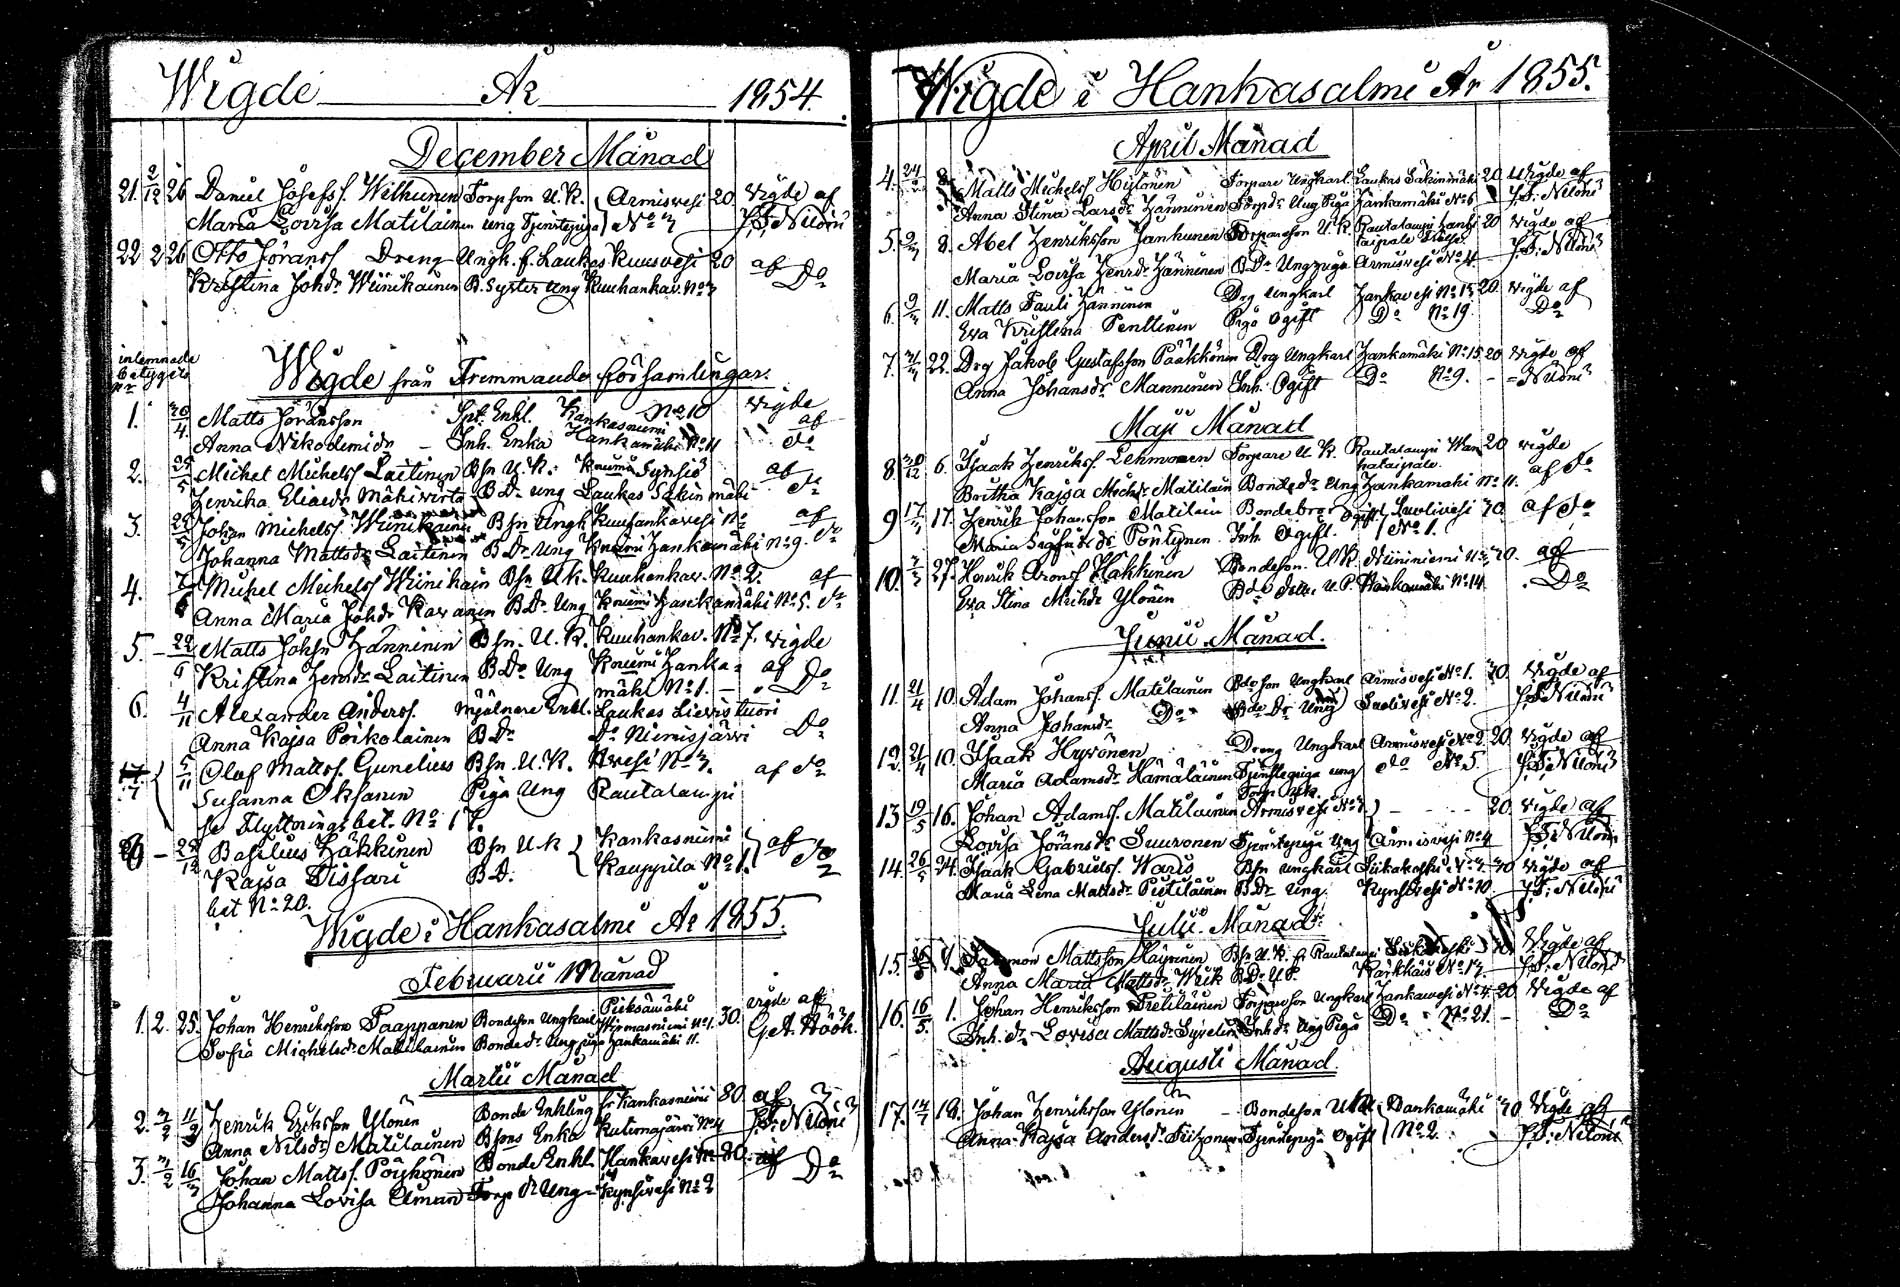 Wigde År 1854.
December Månad
21. 2/12 26 Daniel Josefss. Wilhunen Torpson U.K. Armisvesi 20. vigde af
Maria Lovisa Matilainen ung Tjenstepiga No 7 J.F. Nilorii
22 2 26 Otto Göranss Dreng Ungk. f. Laukas Kuusvesi 20 af Do
Kristina Johdr Wiinikainen B. Syster Ung Kuuhankav. No 7
inlemnade betygets nr
Wigde från Fremmande församlingar.
1. 20/4 Matts Göransson Spt. Enkl. Kankasniemi No 10 vigde
Anna Nikodemidr - Inh. Enka Hankamäki No 11 af do
2. 25/5 Michel Michelss Laitinen Bsn U.K. Kniemi Synsiö af
Henrika Eliaedr Mäkivirta B.Dr ung Laukas Säkinmäki do
3. 29/5 Johan Michelss. Wiinikainen Bsn Ungk Kuuhankavesi No af
Johanna Mattsdr Laitinen B Dr Ung Kniemi Hankamäki No 9. do
4. Michel Michelss Wiinikain Bsn U.k. Kuuhankav. No 2. af
Anna Maria Johdr Kavanen B Dr Ung Kniemi Hankamäki No 5. do
5. 22/9 Matts Johsn Hänninen Bsn. U.K. Kuuhankav. No 7. vigde
Kristina Henrdr Laitinen B Dr Ung Kniemi Hanka= af Do
mäki No 1.
6. 4/11 Alexander Anderss. Mjölnare Enkl. Laukas Lievistuori
Anna Kajsa Poikolainen B Dr Do Niemisjärvi Do
5/11 Olof Mattss. Gunelius Bsn. U.K. Avesi No 7. af do
Susanna Oksanen Piga Ung Rautalampi
se Flyttningsbet. No 17.
Basilius Häkkinen Bsn U k Kankasniemi af do
Kajsa Dissari B.D. Kauppila No 1.
bet No 20.
Wigde i Hankasalmi År 1855.
Februarii Månad
1. 2. 25. Johan Henriksson Paappanen Bondeson Ungkarl Pieksämäki 30. vigde af
Sofia Michelsdr Matilainen Bondedr Ung piga Hankamäki 11. G.A. Höök.
Martii Månad
2. 11/3 Henrik Ericksson Ylönen Bonde Enkling fr Kankasniemi 80. af
Anna Nilsdr Matilainen Bsons Enka Kutemajärvi No 4 J.F. Nilorii
3. 2 16 Johan Mattss. Pöyhönen Bonde Enkl. Hankavesi 80. af Do
Johanna Lovisa Åman Torp dr Ung Kynsivesi No 2
Wigde i Hankasalmi År 1855.
April Månad
4. 24 8. Matts Michelss Hytönen Torpare Ungkarl Laukas Säkinmäki 20 Wigde af
Anna Stina Larsdr Hänninen Torpdr Ung Piga Hankamäki No 6 J.F. Nilorii
5. 8. Abel Henriksson Jankunen Torpareson U K Rautalampi Hanhi 20 vigde af
taipale
Maria Lovisa Henrdr Hänninen B Dr Ungpiga Armisvesi No 4 J.F. Nilorii
6. 11. Matts Pauli Hänninen Drg Ungkarl Hankavesi No 15 20. vigde af
Eva Kristina Penttinen Piga Ogift Do No 19. Do
7. 22. Drg Jakob Gustafsson Pääkkönen Drg Ungkarl Hankamäki No 15 20 vigde af
Anna Johansdr Manninen Inh. Ogift Do No 9. - = Nilorii
Maji Månad
8 20/12 6. Isaak Henrikss. Lehmonen Torpare U K. Rautalampi Wan 20 vigde
hataipale.
Britha Kajsa Michdr Matilain Bondedr Ung Hankamäki No 11. af do
9 17 17. Henrik Johansson Matilain Bondebror Ogift Suolivesi 70. af do
Maria Sigfridsdr Pöntynen Inh. Ogift. No 1.
10. 27. Henrik Aronss Häkkinen Bondeson U K. Niininiemi 20. af
Eva Stina Michdr Ylönen Hankamäki No 14 Do
Junii Månad.
11. 21/4 10. Adam Johanss. Matilainen Bdeson Ungkarl Armisvesi No 1. 70. Wigde af
Anna Johansdr Do Bde Dr Ung Suolivesi No 2. J.F. Nilorii
12. 21/4 10. Isaak Hyvönen Dreng Ungkarl Armisvesi No 2. 20 vigde af
Maria Adamsdr Hämäläinen Tjenstepiga ung do No 5 J.F. Nilorii
13 19/5 16. Johan Adamss. Matilainen Torp U.k. Armisvesi No 7 - - - 20. vigde af
Lovisa Göransdr Suuronen Tjenstepiga Ung Armisvesi No 4 J.F. Nilorii
14. 26/5 24. Isaak Gabrielss. Waris Bsn ungkarl Siikakoski 70 vigde af
Maria Lena Mattsdr Pietiläinen B Dr Ung. Kynsivesi No 10. J.F. Nilorii
Julii Månad.
15. 1. Salomon Mattsson Häyrinen Bsn U.K. fr Rautalampi Wigde af
Anna Maria Mattsdr B Dr U P. Kärkkäis No 17. J.F. Nilorii
16. 16/5. 1. Johan Henriksson Pietiläinen Torpareson Ungkarl Hankavesi No 4 20 Wigde af
Inh. dr Lovisa Mattsdr Inh dr Ung Piga Do No 21. - Do
Augusti Månad.
17. 14/7 19. Johan Henriksson Ylönen - Bondeson U K. Hankamäki 70 Wigde af
Anna Kajsa Andersdr Tjenstepiga Ogift No 2 J.F. Nilorii